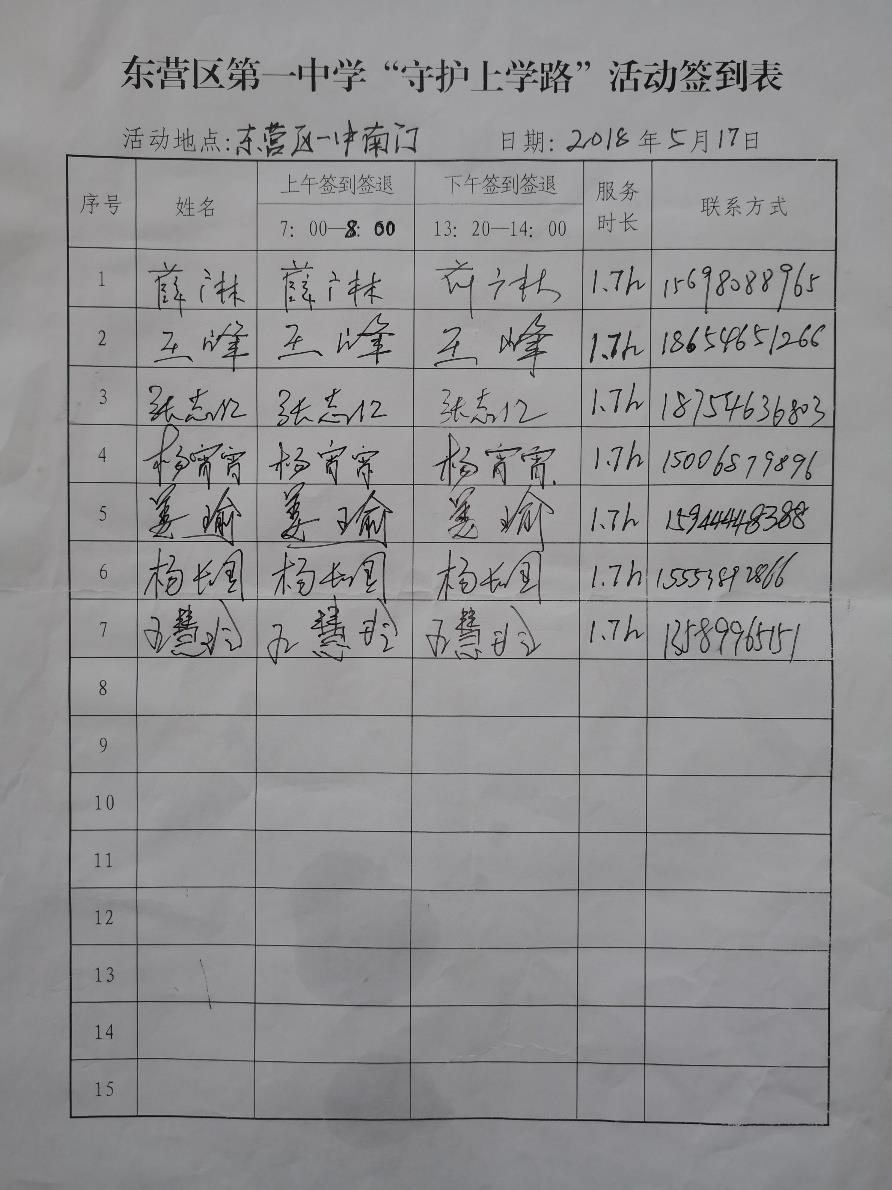 东营区第一中学“守护上学路”活动签到表
活动地点:东营区一中南门 日期: 2018年5月17日
序号 姓名 上午签到签退 下午签到签退 服务时长 联系方式
7: 00—8: 00 13: 20—14: 00
1 薛广林 薛广林 薛广林 1.7h 15698088965
2 王峰 王峰 王峰 1.7h 18654651266
3 张志仁 张志仁 张志仁 1.7h 18754636803
4 杨宵宵 杨宵宵 杨宵宵 1.7h 15006879896
5 姜瑜 姜瑜 姜瑜 1.7h 15944448388
6 杨长国 杨长国 杨长国 1.7h 15553892866
7 慧玲 慧玲 慧玲 1.7h 13589965151
8
9
10
11
12
13
14
15